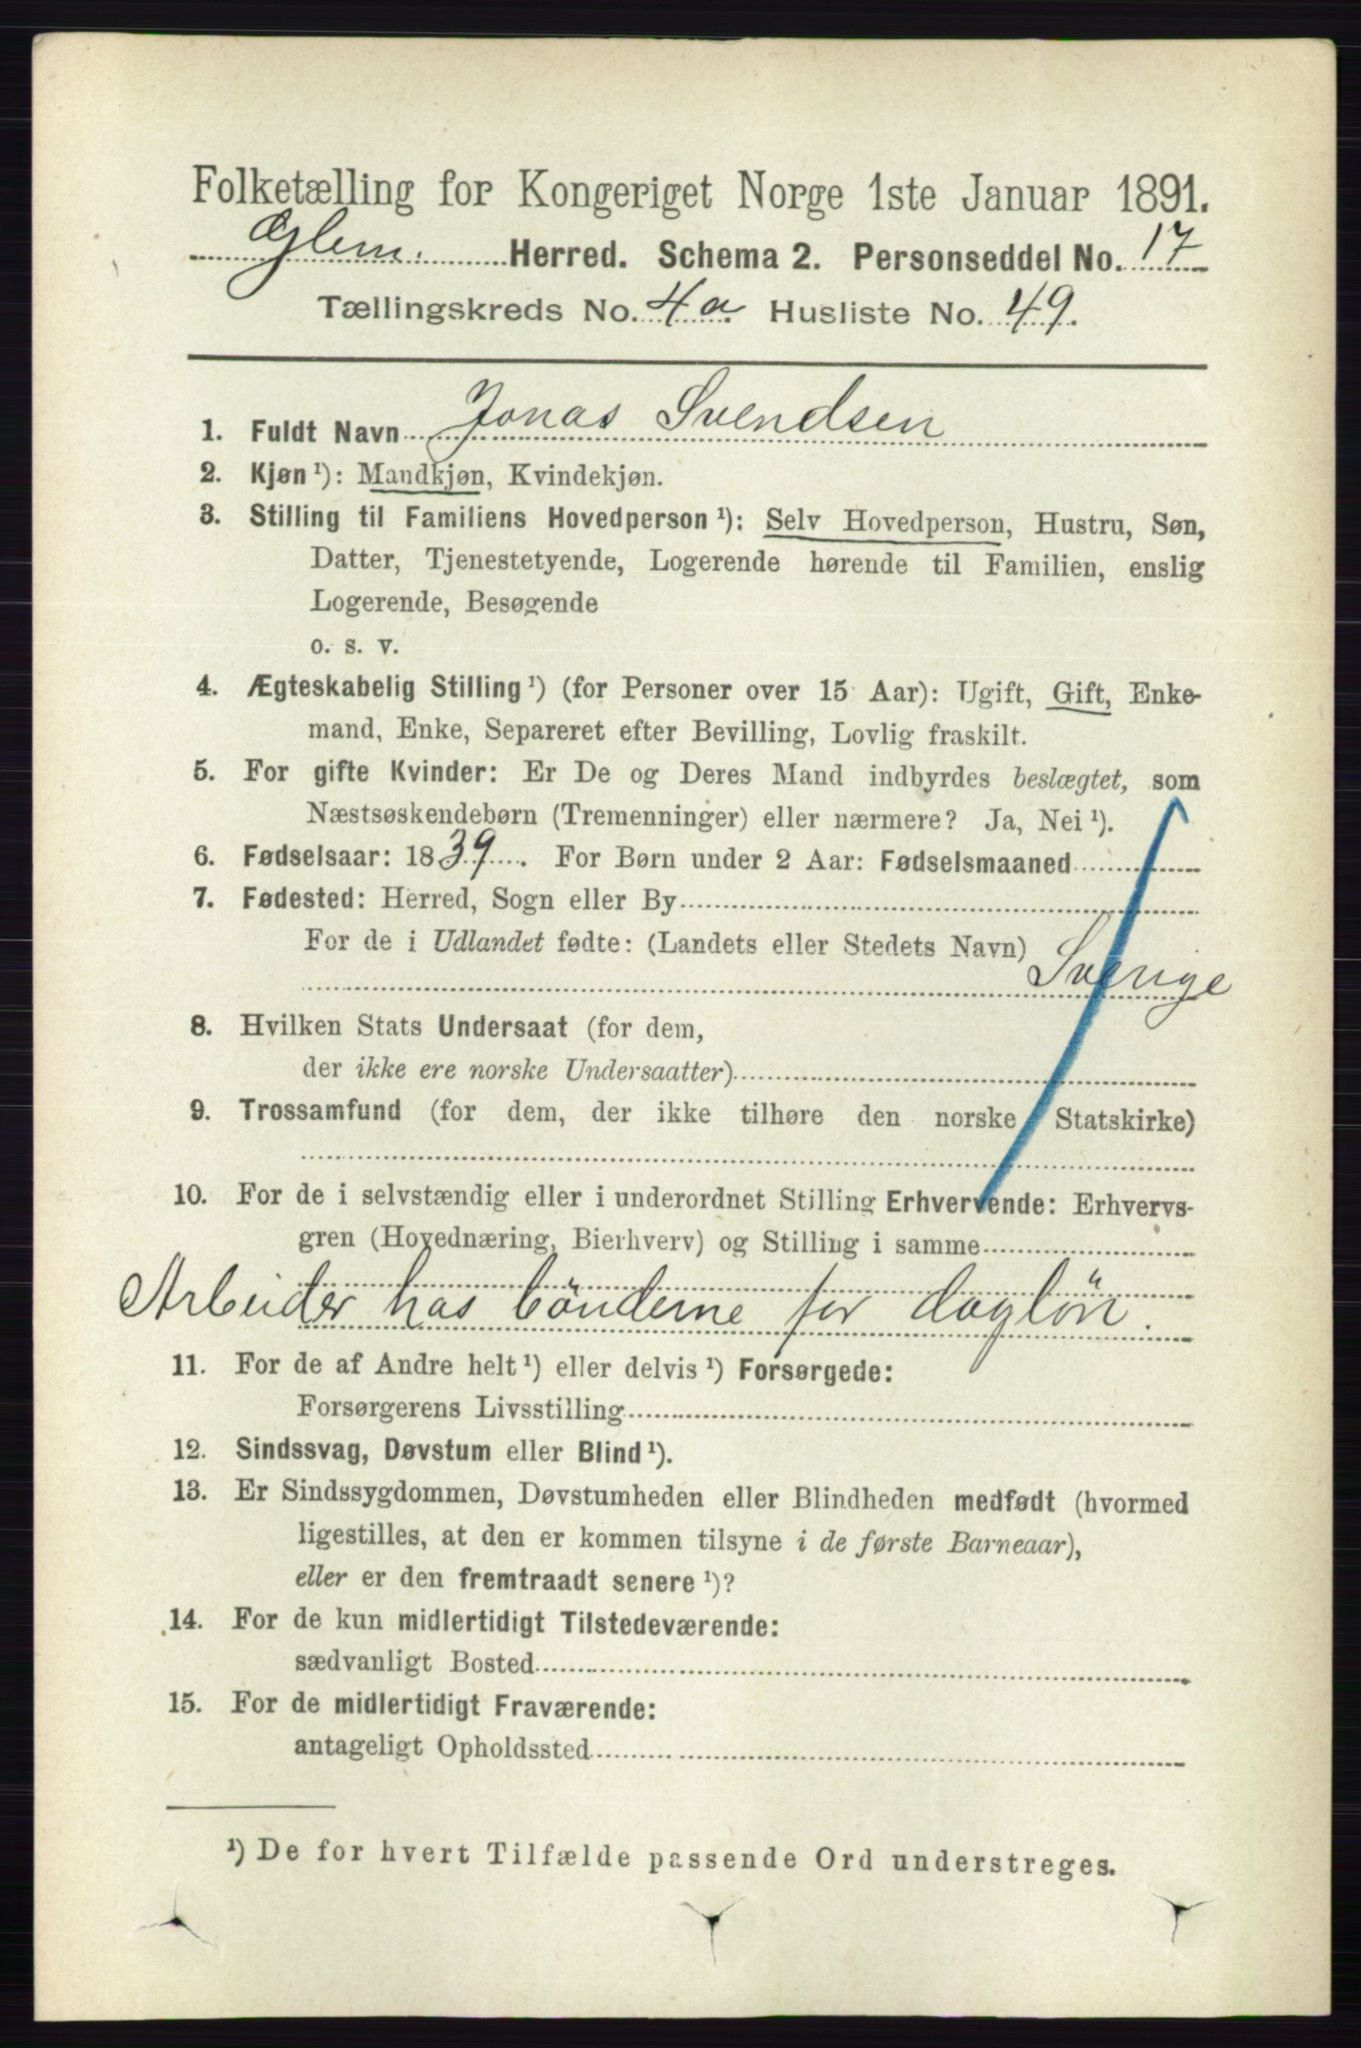 Folketælling for Kongeriget Norge 1ste Januar 1891.
Glem. Herred. Schema 2. Personseddel No. 17
Tællingskreds No. 4a. Husliste No. 49.
1. Fuldt Navn Jonas Svendsen
2. Kjøn ¹): Mandkjøn, Kvindekjøn.
3. Stilling til Familiens Hovedperson ¹): Selv Hovedperson, Hustru, Søn,
Datter, Tjenestetyende, Logerende hørende til Familien, enslig
Logerende, Besøgende
o. s. v.
4. Ægteskabelig Stilling ¹) (for Personer over 15 Aar): Ugift, Gift, Enke-
mand, Enke, Separeret efter Bevilling, Lovlig fraskilt.
5. For gifte Kvinder: Er De og Deres Mand indbyrdes beslægtet, som
Næstsøskendebørn (Tremenninger) eller nærmere? Ja, Nei ¹).
6. Fødselsaar: 1839. For Børn under 2 Aar: Fødselsmaaned
7. Fødested: Herred, Sogn eller By
For de i Udlandet fødte: (Landets eller Stedets Navn)
Sverige
8. Hvilken Stats Undersaat (for dem,
der ikke ere norske Undersaatter)
9. Trossamfund (for dem, der ikke tilhøre den norske Statskirke)
10. For de i selvstændig eller i underordnet Stilling Erhvervende: Erhvervs-
gren (Hovednæring, Bierhverv) og Stilling i samme
Arbeider hos bönderne for daglön.
11. For de af Andre helt ¹) eller delvis ¹) Forsørgede:
Forsørgerens Livsstilling
12. Sindssvag, Døvstum eller Blind ¹).
13. Er Sindssygdommen, Døvstumheden eller Blindheden medfødt (hvormed
ligestilles, at den er kommen tilsyne i de første Barneaar),
eller er den fremtraadt senere ¹)?
14. For de kun midlertidigt Tilstedeværende:
sædvanligt Bosted
15. For de midlertidigt Fraværende:
antageligt Opholdssted
¹) De for hvert Tilfælde passende Ord understreges.